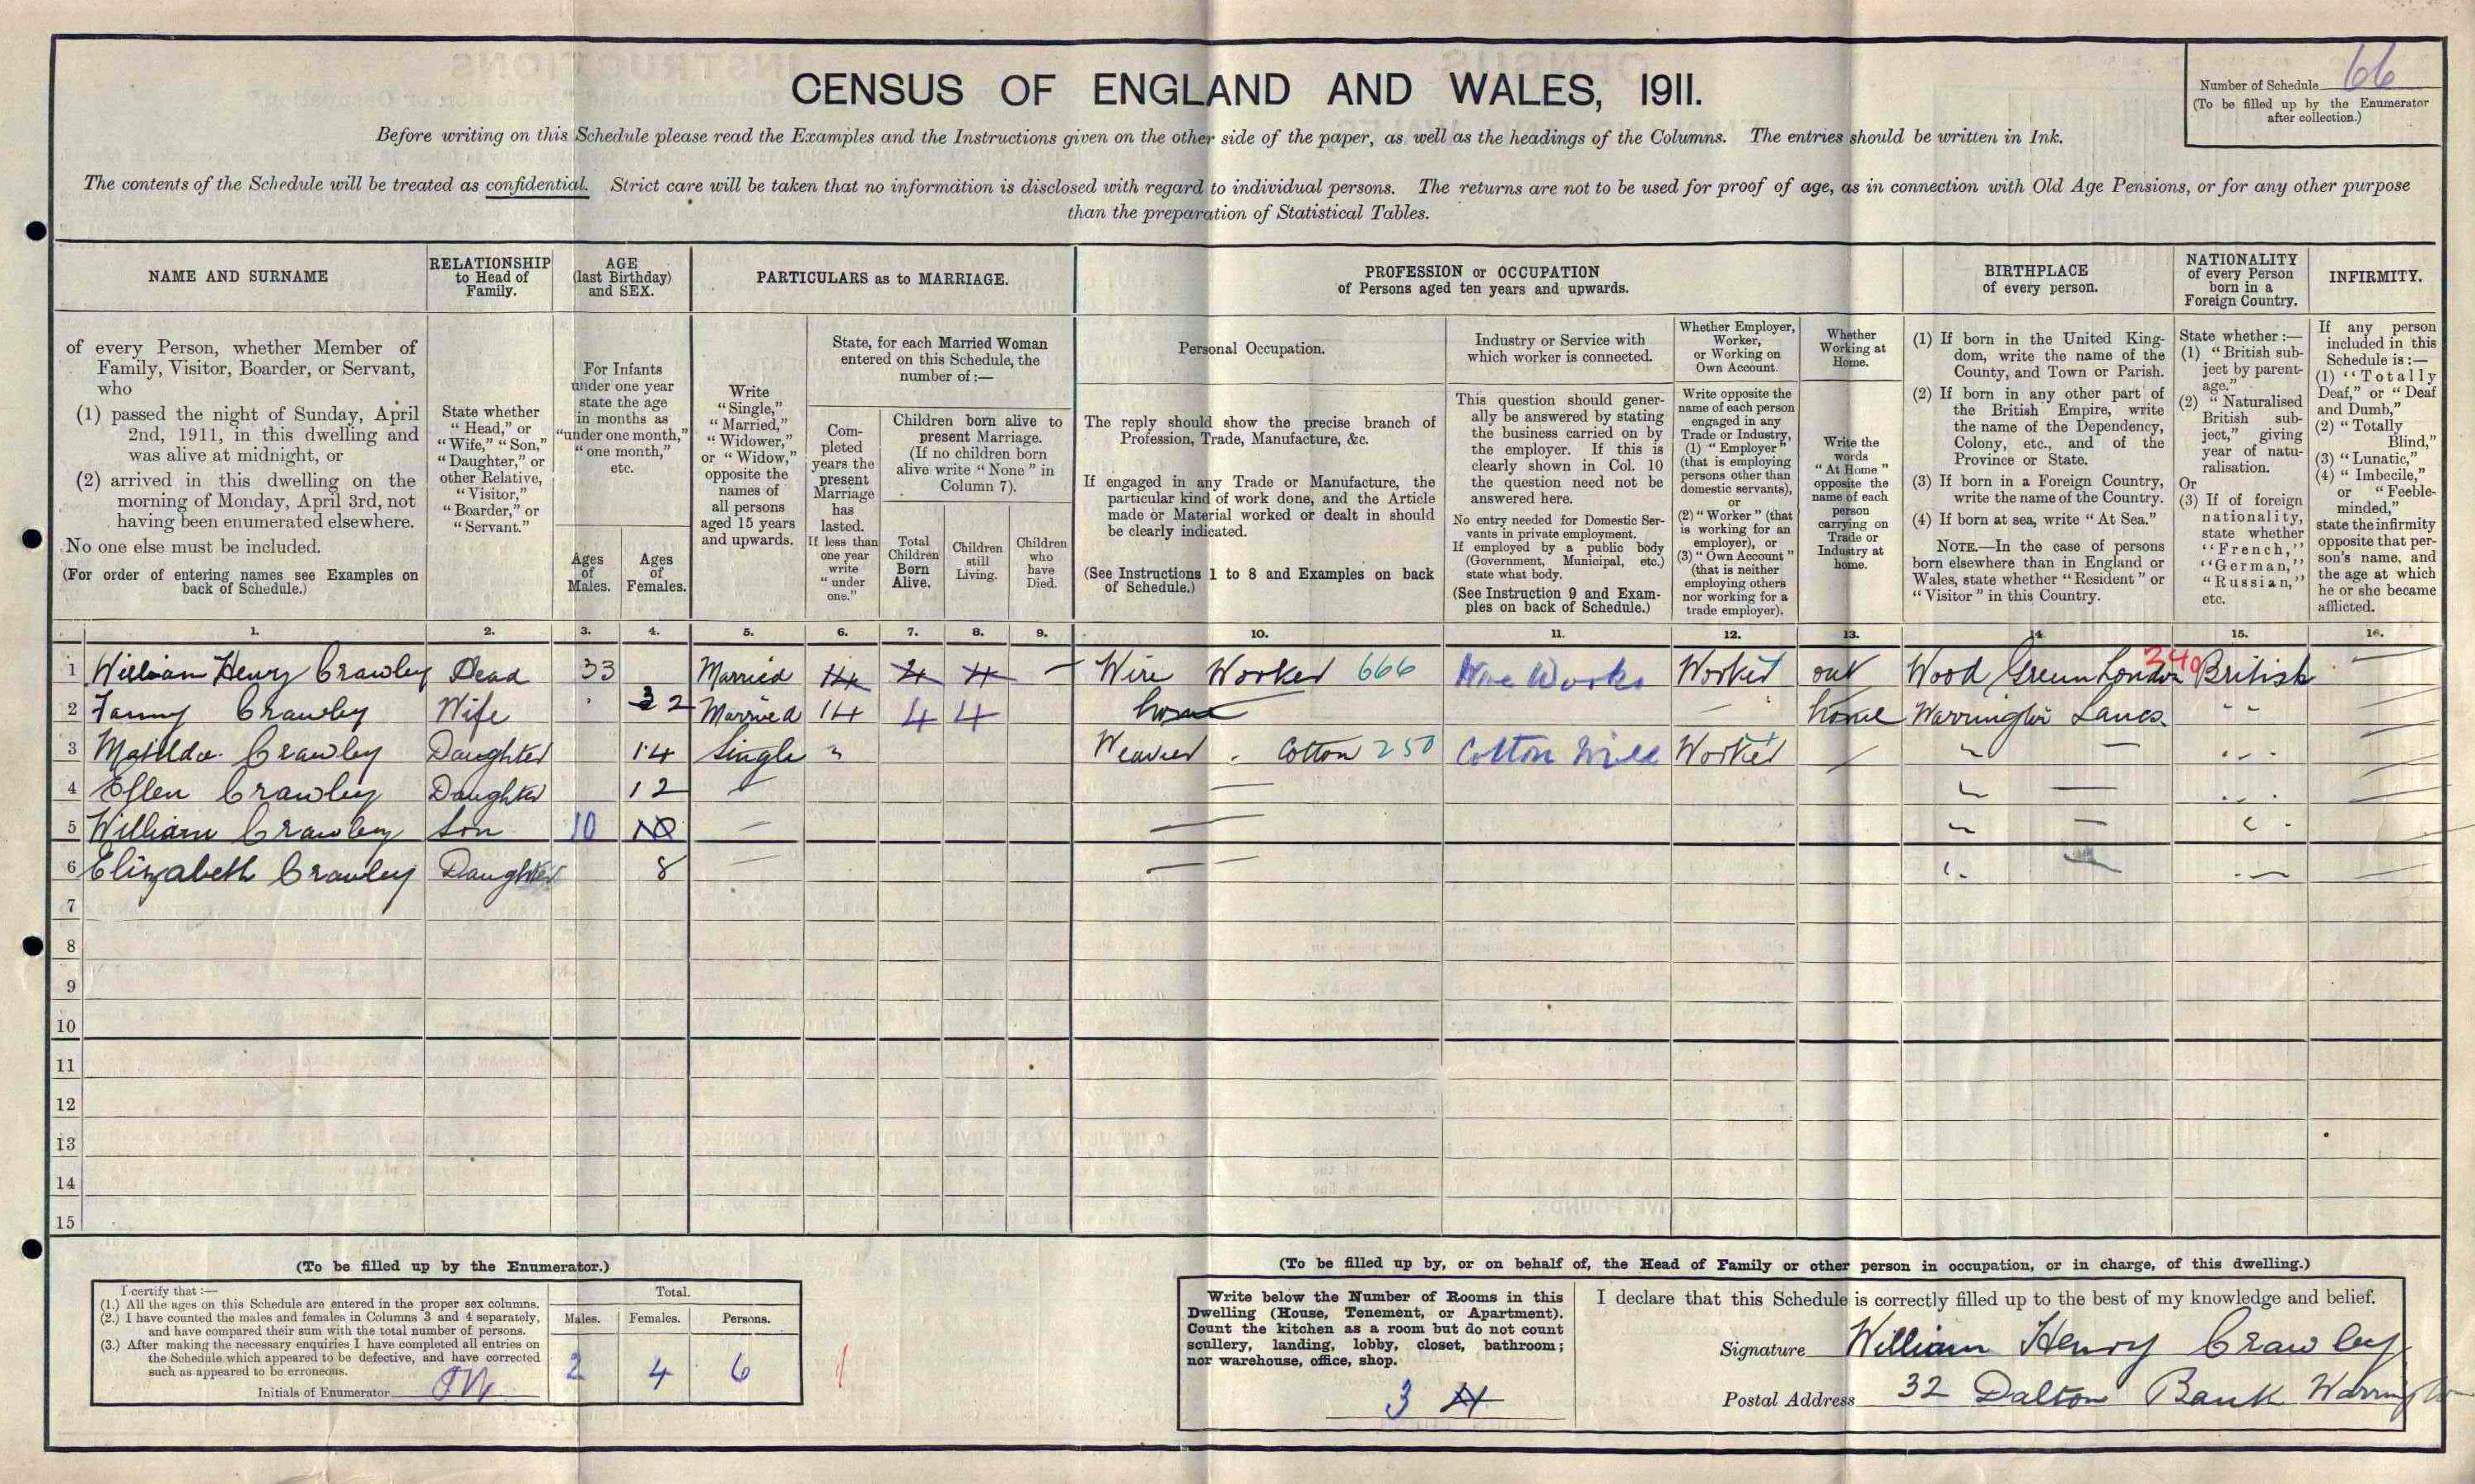 Number of Schedule 66
(To be filled up by the Enumerator
after collection.)
CENSUS OF ENGLAND AND WALES, 1911.
Before writing on this Schedule please read the Examples and the Instructions given on the other side of the paper, as well as the headings of the Columns. The entries should be written in Ink.
The contents of the Schedule will be treated as confidential. Strict care will be taken that no information is disclosed with regard to individual persons. The returns are not to be used for proof of age, as in connection with Old Age Pensions, or for any other purpose
than the preparation of Statistical Tables.
NAME AND SURNAME
of every Person, whether Member of
Family, Visitor, Boarder, or Servant,
who
(1) passed the night of Sunday, April
2nd, 1911, in this dwelling and
was alive at midnight, or
(2) arrived in this dwelling on the
morning of Monday, April 3rd, not
having been enumerated elsewhere.
No one else must be included.
(For order of entering names see Examples on
back of Schedule.)
RELATIONSHIP
to Head of
Family.
State whether
"Head," or
"Wife," "Son,"
"Daughter," or
other Relative,
"Visitor,"
"Boarder," or
"Servant."
AGE
(last Birthday)
and SEX.
For Infants
under one year
state the age
in months as
"under one month,"
"one month,"
etc.
Ages
of
Males.
Ages
of
Females.
PARTICULARS as to MARRIAGE.
Write
"Single,"
"Married,"
"Widower,"
or "Widow,"
opposite the
names of
all persons
aged 15 years
and upwards.
State, for each Married Woman
entered on this Schedule, the
number of:—
Com-
pleted
years the
present
Marriage
has
lasted.
If less than
one year
write
"under
one."
Children born alive to
present Marriage.
(If no children born
alive write "None" in
Column 7).
Total
Children
Born
Alive.
Children
still
Living.
Children
who
have
Died.
PROFESSION or OCCUPATION
of Persons aged ten years and upwards.
Personal Occupation.
The reply should show the precise branch of
Profession, Trade, Manufacture, &c.
If engaged in any Trade or Manufacture, the
particular kind of work done, and the Article
made or Material worked or dealt in should
be clearly indicated.
(See Instructions 1 to 8 and Examples on back
of Schedule.)
Industry or Service with
which worker is connected.
This question should gener-
ally be answered by stating
the business carried on by
the employer. If this is
clearly shown in Col. 10
the question need not be
answered here.
No entry needed for Domestic Ser-
vants in private employment.
If employed by a public body
(Government, Municipal, etc.)
state what body.
(See Instruction 9 and Exam-
ples on back of Schedule.)
Whether Employer,
Worker,
or Working on
Own Account.
Write opposite the
name of each person
engaged in any
Trade or Industry,
(1) "Employer"
(that is employing
persons other than
domestic servants),
or
(2) "Worker" (that
is working for an
employer), or
(3) "Own Account"
(that is neither
employing others
nor working for a
trade employer).
Whether
Working at
Home.
Write the
words
"At Home"
opposite the
name of each
person
carrying on
Trade or
Industry at
home.
BIRTHPLACE
of every person.
(1) If born in the United King-
dom, write the name of the
County, and Town or Parish.
(2) If born in any other part of
the British Empire, write
the name of the Dependency,
Colony, etc., and of the
Province or State.
(3) If born in a Foreign Country,
write the name of the Country.
(4) If born at sea, write "At Sea."
NOTE.—In the case of persons
born elsewhere than in England or
Wales, state whether "Resident" or
"Visitor" in this Country.
NATIONALITY
of every Person
born in a
Foreign Country.
State whether:—
(1) "British sub-
ject by parent-
age."
(2) "Naturalised
British sub-
ject," giving
year of natu-
ralisation.
Or
(3) If of foreign
nationality,
state whether
"French,"
"German,"
"Russian,"
etc.
INFIRMITY.
If any person
included in this
Schedule is:—
(1) "Totally
Deaf," or "Deaf
and Dumb,"
(2) "Totally
Blind,"
(3) "Lunatic,"
(4) "Imbecile,"
or "Feeble-
minded,"
state the infirmity
opposite that per-
son's name, and
the age at which
he or she became
afflicted.
1. 2. 3. 4. 5. 6. 7. 8. 9. 10. 11. 12. 13. 14. 15. 16.
1 William Henry Crawley Head 33 Married 14 4 4 — Wire Worker 666 Wire Works Worker out Wood Green London 240 British —
2 Fanny Crawley Wife 32 Married 14 4 4 home — home Warrington Lancs. " "
3 Matilda Crawley Daughter 14 Single " Weaver Cotton 250 Cotton Mill Worker " —
4 Ellen Crawley Daughter 12 — " —
5 William Crawley Son 10 10 — — " —
6 Elizabeth Crawley Daughter 8 — — " —
7
8
9
10
11
12
13
14
15
(To be filled up by the Enumerator.)
I certify that:—
(1.) All the ages on this Schedule are entered in the proper sex columns.
(2.) I have counted the males and females in Columns 3 and 4 separately,
and have compared their sum with the total number of persons.
(3.) After making the necessary enquiries I have completed all entries on
the Schedule which appeared to be defective, and have corrected
such as appeared to be erroneous.
Initials of Enumerator
Total.
Males. Females. Persons.
2 4 6
(To be filled up by, or on behalf of, the Head of Family or other person in occupation, or in charge, of this dwelling.)
Write below the Number of Rooms in this
Dwelling (House, Tenement, or Apartment).
Count the kitchen as a room but do not count
scullery, landing, lobby, closet, bathroom;
nor warehouse, office, shop.
3 4
I declare that this Schedule is correctly filled up to the best of my knowledge and belief.
Signature William Henry Crawley
Postal Address 32 Dalton Bank Warrington